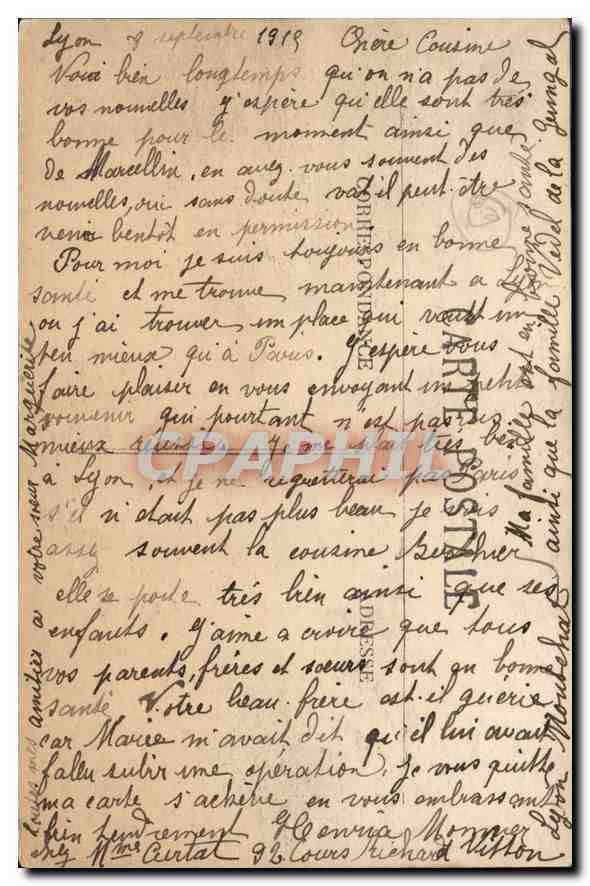 Lyon 8 septembre 1919 Chère Cousine
Voici bien longtemps qu'on n'a pas de
vos nouvelles j'espère qu'elle sont très
bonne pour le moment ainsi que
de Marcellin, en avez-vous souvent des
nouvelles, oui sans doute vat-il peut-être
venir bentôt en permission
Pour moi je suis toujours en bonne
santé et me trouve maintenant a Lyon
ou j'ai trouver un place qui vaut un
peu mieux qu'à Paris. J'espère vous
faire plaisir en vous envoyant un petit
souvenir qui pourtant n'est pas
mieux réussi je me plait très bien
à Lyon, et je ne regretterai pas Paris
s'il n'etait pas plus beau je vais
assez souvent la cousine
elle se porte très bien ainsi que ses
enfants. J'aime a croire que tous
vos parents, frères et sœurs sont en bonne
santé Votre beau-frère est-il guérie
car Marie m'avait dit qu'il lui avait
fallu subir une opération. Je vous quitte
ma carte s'achève en vous embrassant
bien tendrement Henria Monnier
chez Mme Curtat 92 Cours Richard Vitton
Lyon Montchat
Ma famille est en bonne santé
ainsi que la famille Vedel de la
toutes mes amitiés a votre sœur Marguerite
CARTE POSTALE
CORRESPONDANCE
ADRESSE
CPAPHIL